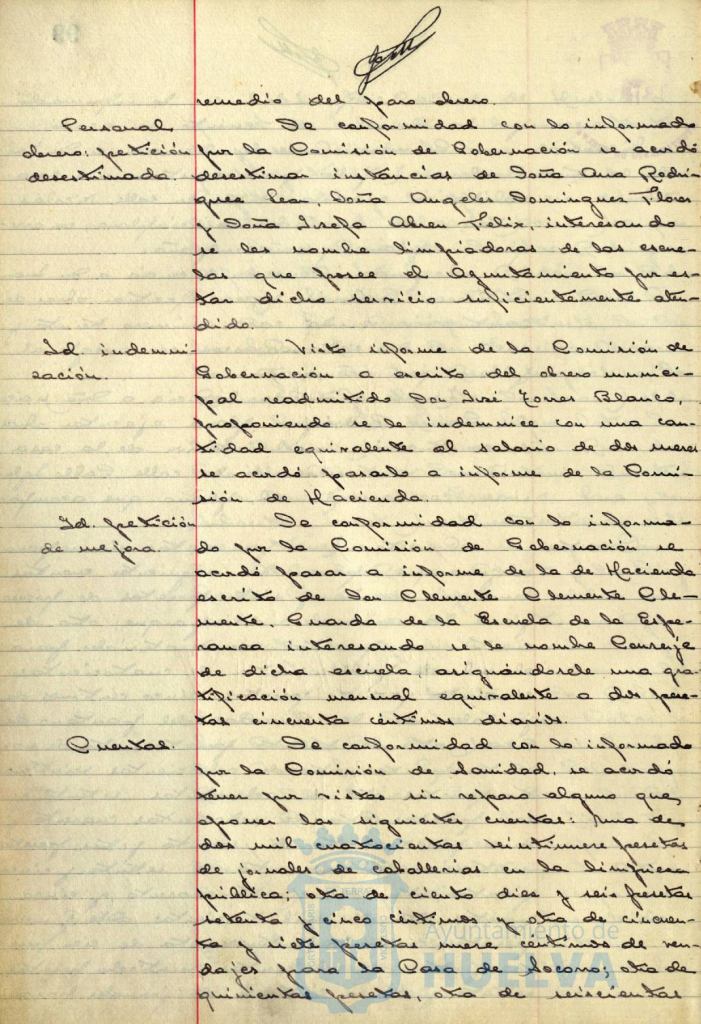 remedio del paro obrero.
Personal
obrero: petición
desestimada.
De conformidad con lo informado
por la Comisión de Gobernación se acordó
desestimar instancias de Doña Ana Rodri-
guez Leon, Doña Angeles Dominguez Flores
y Doña Josefa Abreu Felix, interesando
se las nombre limpiadoras de las escue-
las que posee el Ayuntamiento por es-
tar dicho servicio suficientemente aten-
dido.
Id. indemni-
zación.
Visto informe de la Comisión de
Gobernación a escrito del obrero munici-
pal readmitido Don José Torres Blanco,
proponiendo se le indemnice con una can-
tidad equivalente al salario de dos meses
se acordó pasarlo a informe de la Comi-
sión de Hacienda.
Id. petición
de mejora.
De conformidad con lo informa-
do por la Comisión de Gobernación se
acordó pasar a informe de la de Hacienda
escrito de Don Clemente Clemente Cle-
mente, Guarda de la Escuela de la Espe-
ranza interesando se le nombre Conserje
de dicha escuela, asignándosele una gra-
tificación mensual equivalente a dos pese-
tas cincuenta céntimos diarios.
Cuentas.
De conformidad con lo informado
por la Comisión de Sanidad, se acordó
tener por vistas sin reparo alguno que
oponer las siguientes cuentas: Una de
dos mil cuatrocientas veintinueve pesetas
de jornales de caballerias en la limpieza
pública; otra de ciento diez y seis pesetas
setenta y cinco céntimos y otra de cincuen-
ta y siete pesetas nueve céntimos de ven-
dajes para la Casa de Socorro; otra de
quinientas pesetas, otra de seiscientas
Ayuntamiento de
HUELVA